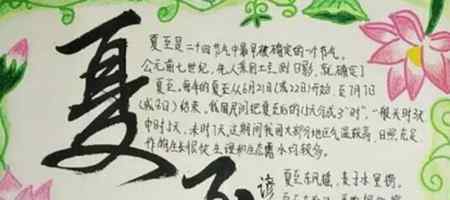 夏
夏至是二十四节气中最早被确定的一个节气。
公元前七世纪,先人采用土圭测日影,就确定了
夏至。每年的夏至从6月21日(或22日)开始,至7月7日
(或8日)结束。我国民间把夏至后的15天分成3"时",一般头时3天
中时5天,末时7天。这期间我国大部分地区气温较高,日照充足,
作物生长很快,生理和生态需水均较多。
谚
夏至东风摇,麦子水里捞。